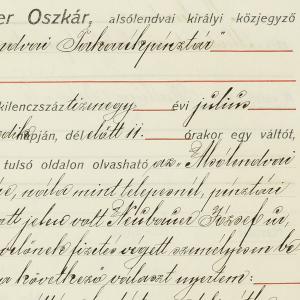 er Oszkár, alsólendvai királyi közjegyző
ndvai Takarékpénztár"
kilenczszáz tizenegy évi julius
dik napján, dél előtt 11. órakor egy váltót,
tulsó oldalon olvasható az "Alsólendvai
nála mint telepesnél, pénztári
att jelen volt Neubauer József ur,
velőnek fizetés végett személyesen be
a következő választ nyertem: